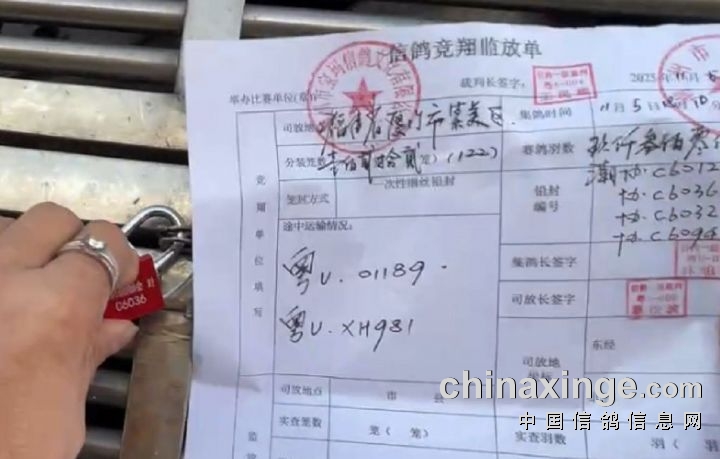 信鸽竞翔临放单
裁判长签字:
2025
举办比赛单位(章):
司放地
福建省厦门市集美区
集鸽时间
11月5日
分装笼数
壹佰贰拾贰 笼)(122)
赛鸽羽数
玖仟叁佰
笼封方式
一次性钢丝铅封
铅封编号
协.C6072
协.C6036
协.C6032
协.C6094
途中运输情况:
粤U.01189.
粤U.XH981
竞翔单位填写
集鸽长签字
司放长签字
司放地
坐标
东经
司放地点
市 县
实查笼数
笼( 笼)
实查羽数
羽( 羽)
C6036
chinaxinge.com
中国信鸽信息网